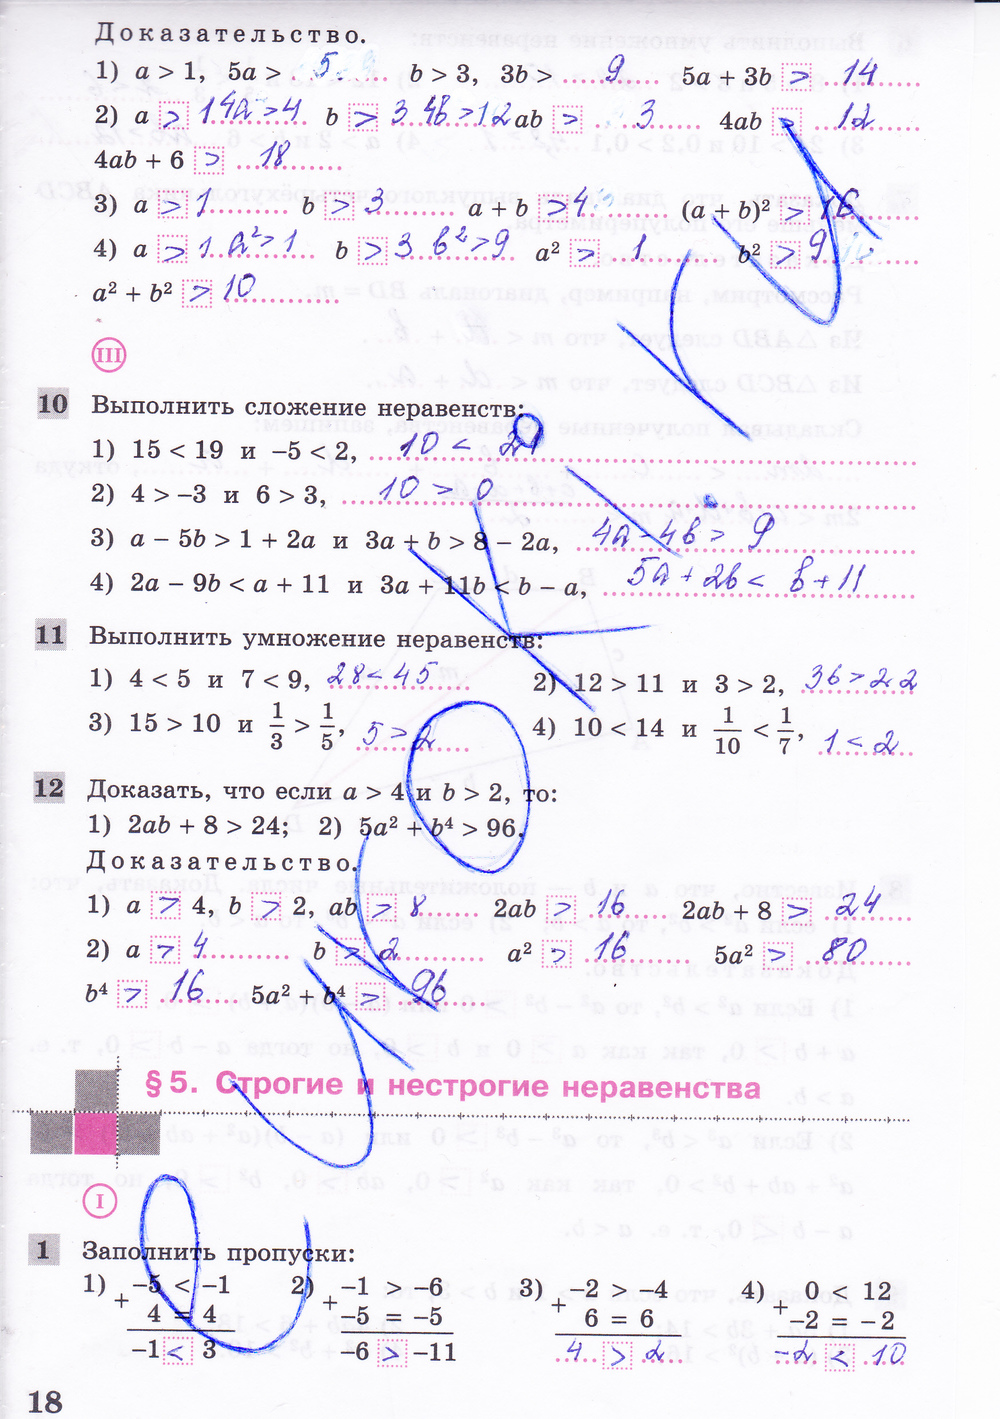 Доказательство.
1) a > 1, 5a > 5 b > 3, 3b > 9 5a + 3b > 14
2) a > 1 4a > 4 b > 3 4b > 12 ab > 3 4ab > 12
4ab + 6 > 18
3) a > 1 b > 3 a + b > 4 (a + b)² > 16
4) a > 1 a² > 1 b > 3 b² > 9 a² > 1 b² > 9
a² + b² > 10
III
10 Выполнить сложение неравенств:
1) 15 < 19 и -5 < 2, 10 < 21
2) 4 > -3 и 6 > 3, 10 > 0
3) a - 5b > 1 + 2a и 3a + b > 8 - 2a, 4a - 4b > 9
4) 2a - 9b < a + 11 и 3a + 11b < b - a, 5a + 2b < b + 11
11 Выполнить умножение неравенств:
1) 4 < 5 и 7 < 9, 28 < 45 2) 12 > 11 и 3 > 2, 36 > 22
3) 15 > 10 и 1/3 > 1/5, 5 > 2 4) 10 < 14 и 1/10 < 1/7, 1 < 2
12 Доказать, что если a > 4 и b > 2, то:
1) 2ab + 8 > 24; 2) 5a² + b⁴ > 96.
Доказательство.
1) a > 4, b > 2, ab > 8 2ab > 16 2ab + 8 > 24
2) a > 4 b > 2 a² > 16 5a² > 80
b⁴ > 16 5a² + b⁴ > 96
§ 5. Строгие и нестрогие неравенства
I
1 Заполнить пропуски:
1) -5 < -1 2) -1 > -6 3) -2 > -4 4) 0 < 12
+ 4 = 4 + -5 = -5 + 6 = 6 + -2 = -2
-1 < 3 -6 > -11 4 > 2 -2 < 10
18